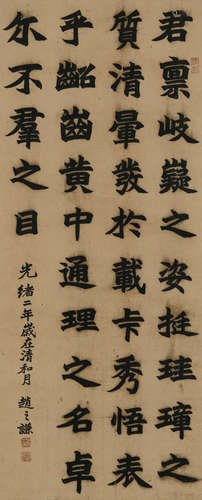 君禀岐嶷之姿挺珪璋之
質清暈發於載卡秀悟表
乎齠齒黄中通理之名卓
尓不羣之目
光緒二年歲在清和月 趙之謙